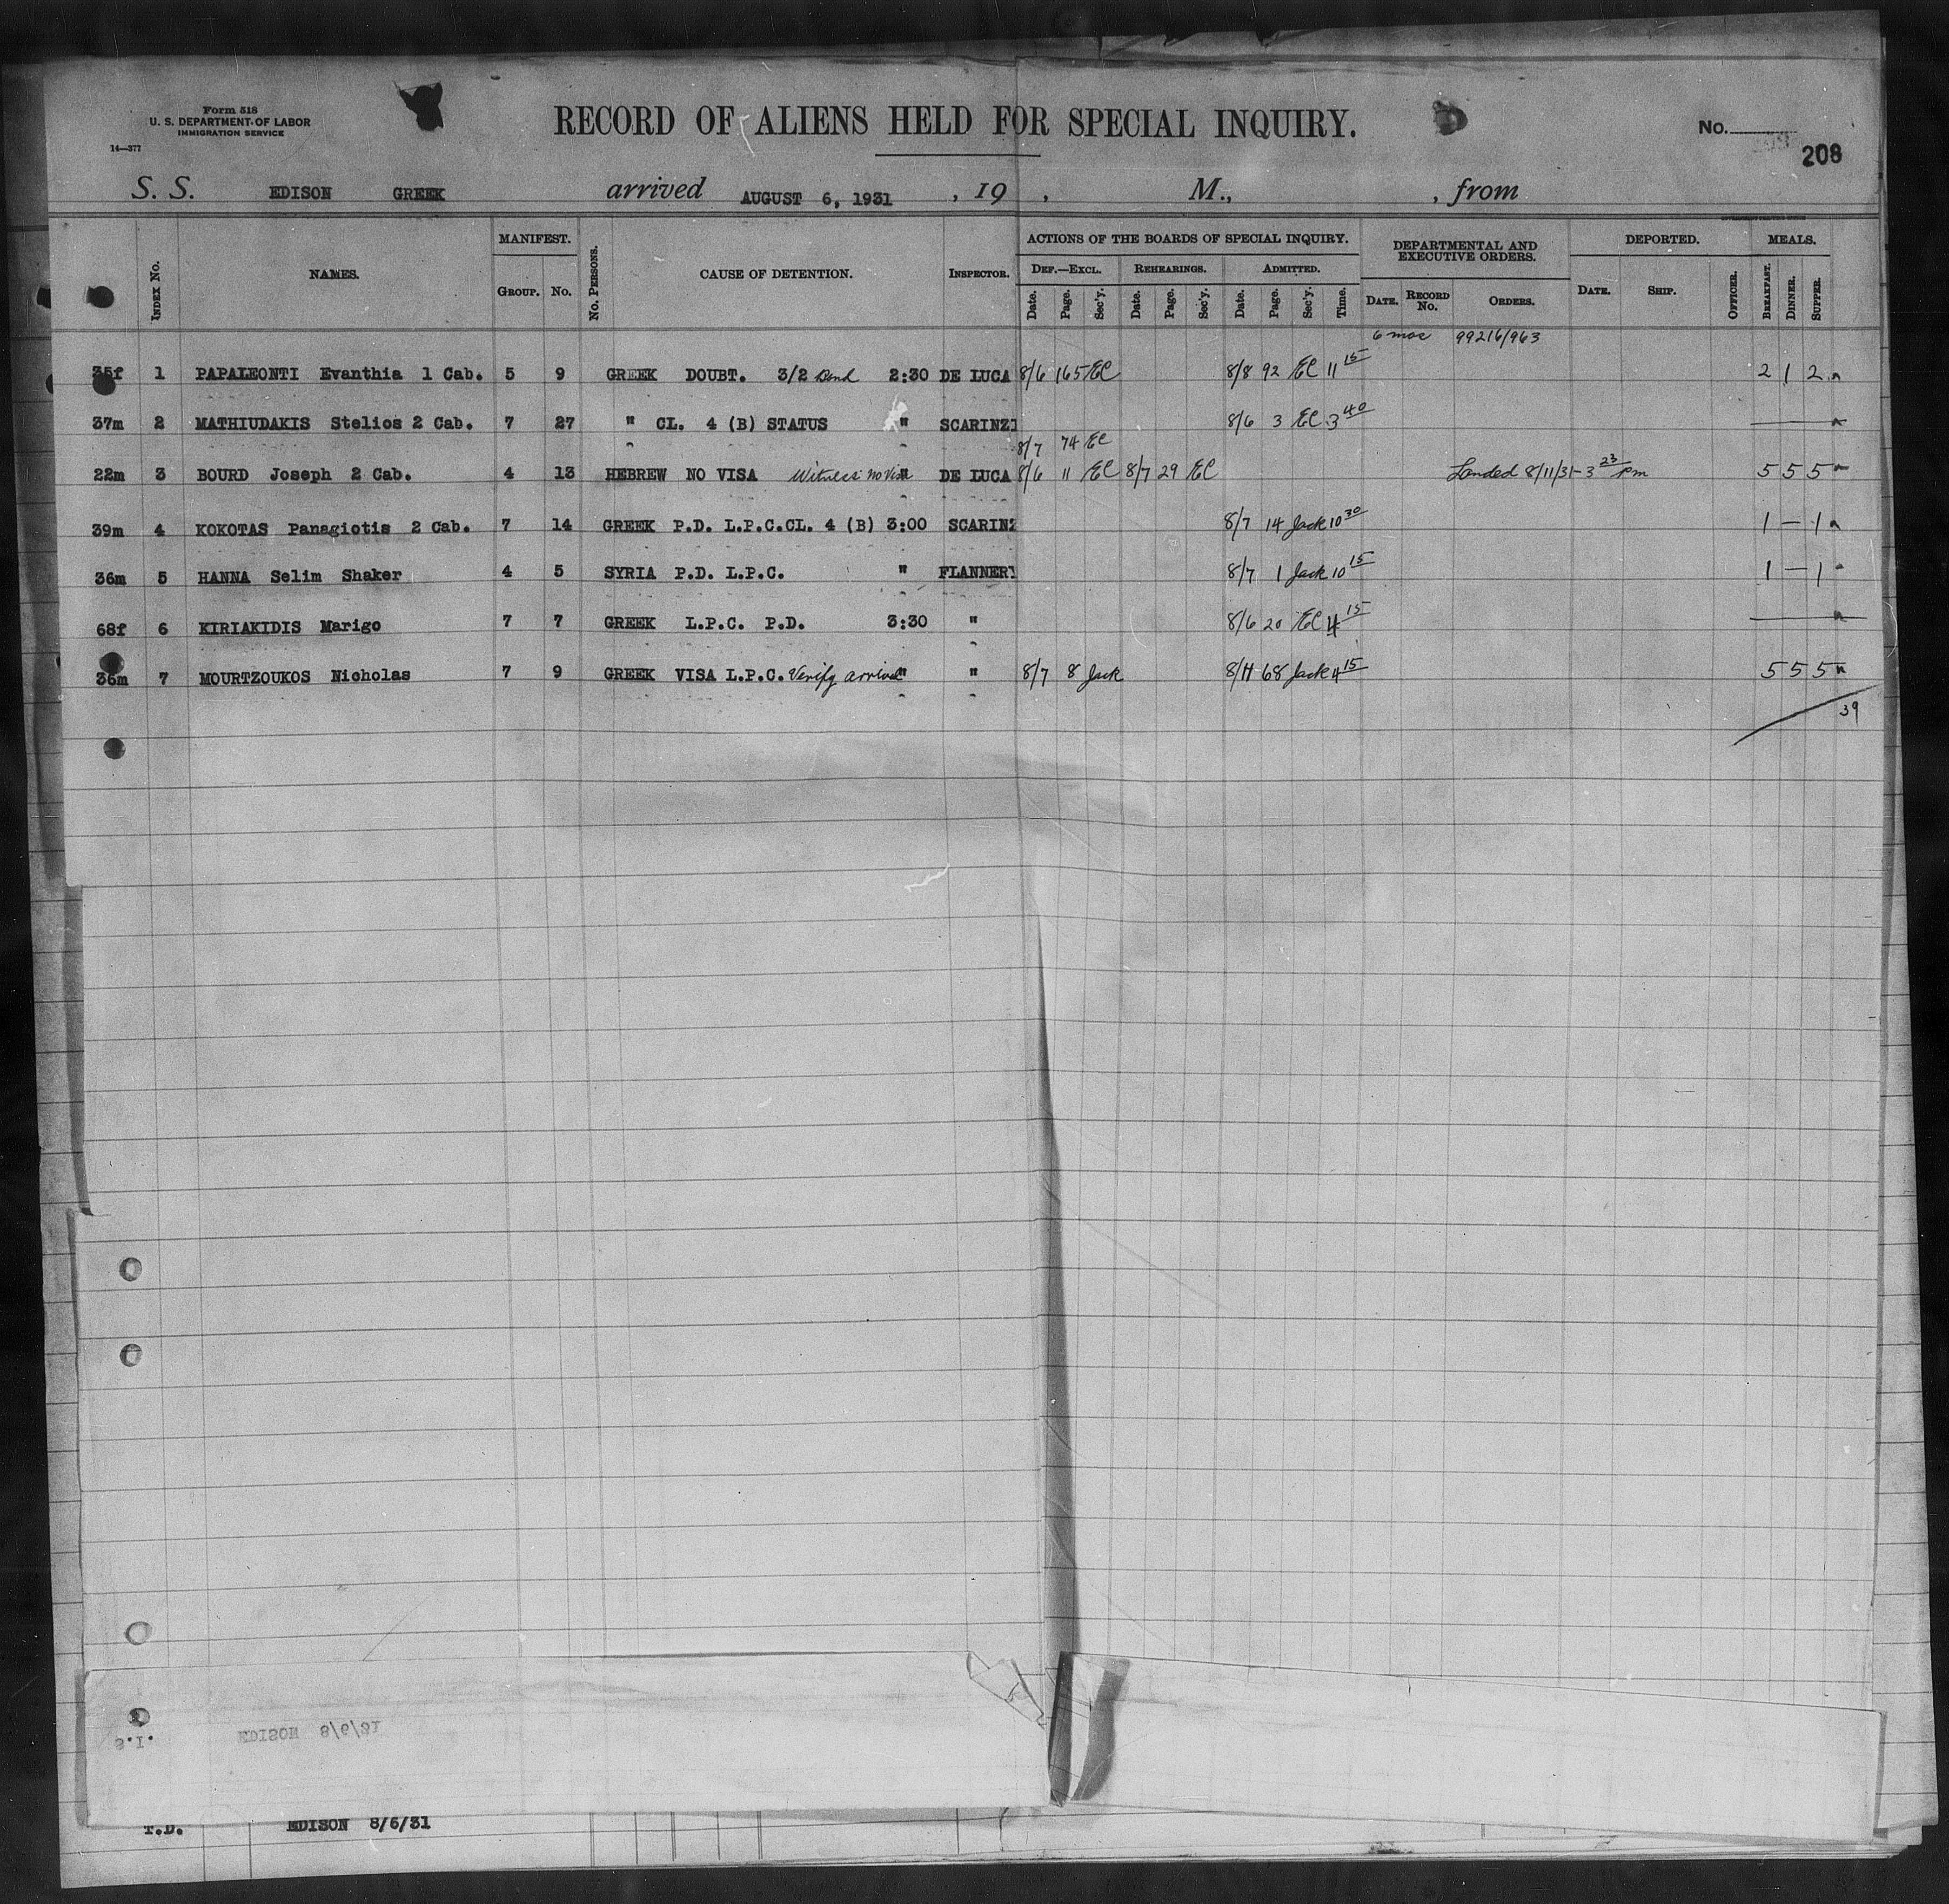 Form 518
U. S. DEPARTMENT OF LABOR
IMMIGRATION SERVICE
14—377
RECORD OF ALIENS HELD FOR SPECIAL INQUIRY.
No.
208
S. S. EDISON GREEK arrived AUGUST 6, 1931 , 19 , M., , from
INDEX No. NAMES. MANIFEST. GROUP. No. No. PERSONS. CAUSE OF DETENTION. INSPECTOR. ACTIONS OF THE BOARDS OF SPECIAL INQUIRY. DEF.—EXCL. Date. Page. Sec'y. REHEARINGS. Date. Page. Sec'y. ADMITTED. Date. Page. Sec'y. Time. DEPARTMENTAL AND EXECUTIVE ORDERS. DATE. RECORD No. ORDERS. DEPORTED. DATE. SHIP. OFFICER. MEALS. BREAKFAST. DINNER. SUPPER.
6 mos 99216/963
35f 1 PAPALEONTI Evanthia 1 Cab. 5 9 GREEK DOUBT. 3/2 Bond 2:30 DE LUCA 8/6 165 EC 8/8 92 EC 11 15 2 1 2
37m 2 MATHIUDAKIS Stelios 2 Cab. 7 27 " CL. 4 (B) STATUS " SCARINZI 8/6 3 EC 3 40
8/7 74 EC
22m 3 BOURD Joseph 2 Cab. 4 13 HEBREW NO VISA Witness no visa " DE LUCA 8/6 11 EC 8/7 29 EC Landed 8/11/31 - 3 23 pm 5 5 5
39m 4 KOKOTAS Panagiotis 2 Cab. 7 14 GREEK P.D. L.P.C.CL. 4 (B) 3:00 SCARINZ 8/7 14 Jack 10 30 1 — 1
36m 5 HANNA Selim Shaker 4 5 SYRIA P.D. L.P.C. " FLANNERY 8/7 1 Jack 10 15 1 — 1
68f 6 KIRIAKIDIS Marigo 7 7 GREEK L.P.C. P.D. 3:30 " 8/6 20 EC 4 15
36m 7 MOURTZOUKOS Nicholas 7 9 GREEK VISA L.P.C. Verify arrival " " 8/7 8 Jack 8/11 68 Jack 4 15 5 5 5
39
S.I. EDISON 8/6/31
T.D. EDISON 8/6/31